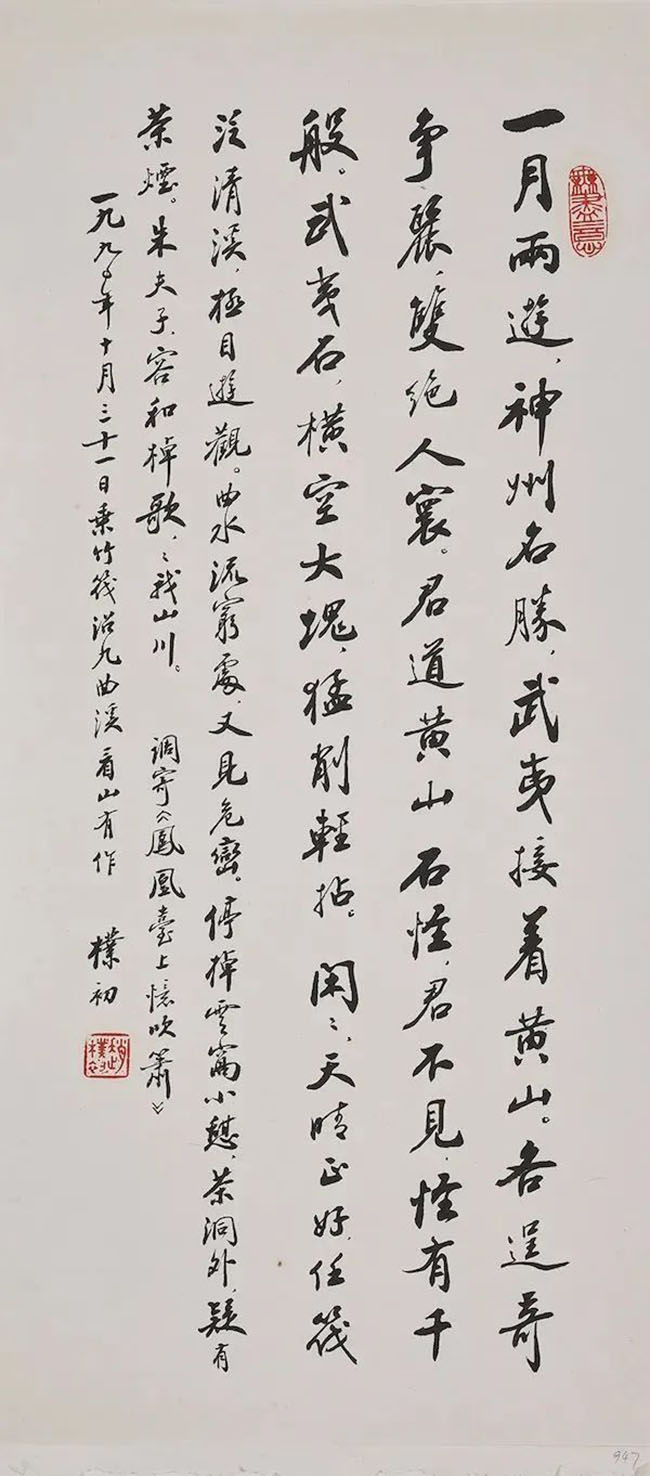 無盡意
一月兩遊，神州名勝，武夷接着黄山。各逞奇
争麗，雙絶人寰。君道黄山石怪，君不見，怪有千
般。武夷石，横空大塊，猛削輕拈。閑〻，天晴正好，任筏
泛清溪，極目遊觀。曲水流窮處，又見危巒。停棹雲窩小憩，茶洞外，疑有
茶煙。朱夫子，容和棹歌，〻我山川。 調寄《鳳凰臺上憶吹簫》
一九九〇年十月三十一日乘竹筏沿九曲溪看山有作 樸初
趙樸初
947